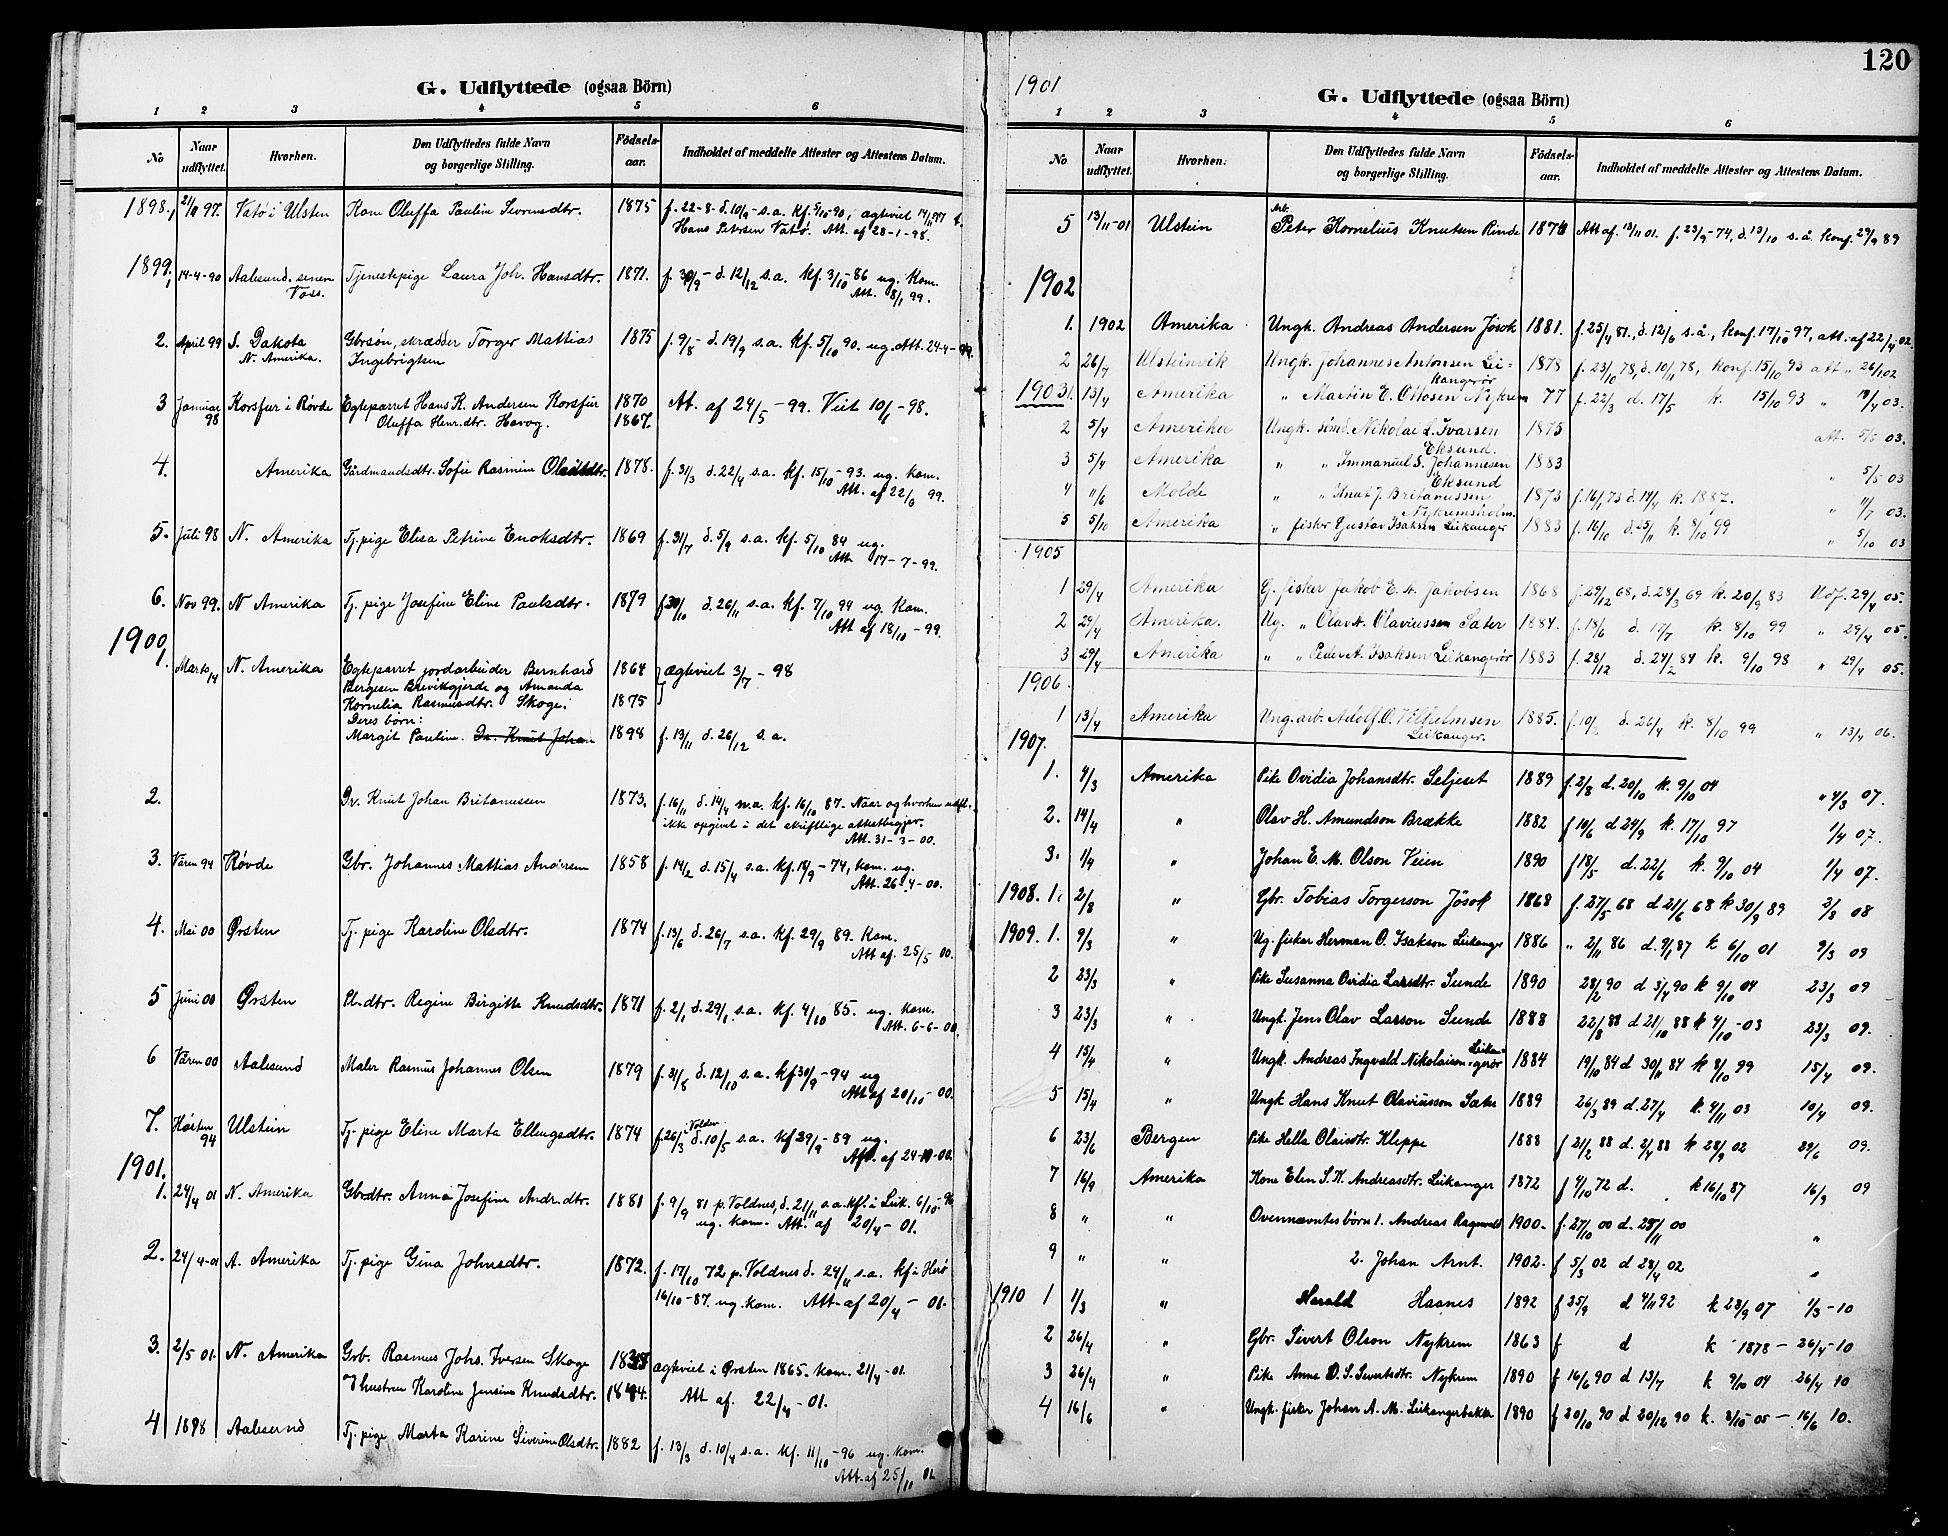 G. Udflyttede (ogsaa Börn)
1 2 3 4 5 6
No Naar udflyttet. Hvorhen. Den Udflyttedes fulde Navn og borgerlige Stilling. Födsels-aar. Indholdet af meddelte Attester og Attestens Datum.
1898, 97. Vatö i Ulsten Kone Oluffa Pauline Severinsdtr. 1875 f. 22-8- d. 10/9 - s.a. kf. 5/10-90,
Hans Petersen Vatö. Att. af 28-1-98.
1899, 14-4-90 Aalesund. senere Tjenestepige Laura Joh. Hansdtr. 1871. d. 12/12 s.a. kf. 3/10 - 86 ug. Kom.
Voss. Att. 8/1 99.
2. April 99 S. Dakota Gbrsøn, skrædder Torger Mattias 1875 f. 9/8 - d. 19/9 s.a. kf. 5/10 90. ug. Att. 24-4-99.
N. Amerika. Ingebrigtsen
3 Januar Korsfur i Røvde Egteparret Hans K. Andersen Korsfur 1870 At. af 24/5 - 99. Viet 10/1 - 98.
98 Oluffa Henr.dtr. Havåg. 1867.
4. Amerika Gårdmandsdtr. Sofie Rasmine Olsdtr. 1878. f. 31/3 d. 22/4 s.a. kf. 15/10 - 93. ug. kom.
Att. af 22/6 99.
5. Juli 98 N. Amerika Tj. pige Elisa Petrine Enoksdtr. 1869 f. 31/7 d. 5/9 s.a. kf. 5/10 84 ug.
Att. 17-7-99.
6. Nov 99. N Amerika Tj. pige Josefine Eline Paulsdtr. 1879 f 30/10 d. 26/11 s.a. kf. 7/10 94 ug. Kom.
Att af 18/10 - 99.
1900,
1. Marts 14 N. Amerika Egteparret jordarbeider Bernhard 1864 ægteviet 3/7 - 98
Bergesen Brevikgjerde og Amanda
Kornelia Rasmusdtr. Skoge; 1875
Deres børn:
Margit Pauline. Dr. Knut Johan 1898 f. 13/11 d. 26/12 s.a.
2. Dr. Knut Johan Britanussen 1873. f. 16/11 d. 14/4 n.a. kf. 16/10 87 - Naar og hvorhen udfl.
ikke opgivet i det skriftlige attestbegjær.
Att. 31-3-00.
3. Våren 94 Røvde Gbr. Johannes Mattias Andersen 1858 f. 14/2 d. 15/4 s.a. kf. 18/9 - 74, kom. ug.
Att. 26-4-00.
4. Mai 00 Ørsten Tj. pige Karoline Olsdtr. 1874 f. 13/6 d. 26/7 s.a. kf. 29/9 89. Kom.
Att af. 25/5 00.
5 Juni 00 Ørsten Pl. dtr. Regine Birgitte Knudsdtr. 1871 f. 2/1 d. 29/1 s.a. kf. 4/10 85. ug. kom.
Att. 6-6-00.
6 Våren 00 Aalesund Maler Rasmus Johannes Olsen 1879 f. 31/8 d. 12/10 s.a. kf 30/9 - 94 ug
Att af 20/10 - 00.
7. Høsten 94 Ulstein Tj. pige Eline Marta Ellingsdtr. 1874 f. 26/3 Volden d. 10/5 s.a. kf 29/9 - 89 ug.
Att. af 24-10-00.
1901.
1. 24/4 01 N. Amerika Gbrdtr. Anna Josefine Andr.dtr. 1881 f. 9/9 81 p. Voldnes, d. 21/11 s.a. kf. i Leik. 6/10-96
ug. kom. Att. af 20/4 - 01.
2. 24/4-01 A. Amerika Tj. pige Gina Johnsdtr. 1872. f. 17/10 72 p. Voldnes d. 24/11 s.a. kf i Herø
16/10 - 87. ug. kom. Att. af 20/4 - 01.
3. 2/5 01. N. Amerika Grb. Rasmus Johs. Iversen Skoge ægteviet i Ørsten 1865. kom. 21/4 - 01.
Hustru Karoline Jensine Knudsdtr. 1844. Att af. 22/4 - 01.
4 1898 Aalesund Tj. pige Marta Karine Severine Olsdtr. 1882 f. 13/3 d. 10/4 s.a. kf. 11/10 - 96 ug. kom.
Att. af 25/10 01
120
1901
G. Udflyttede (ogsaa Börn)
1 2 3 4 5 6
No Naar udflyttet. Hvorhen. Den Udflyttedes fulde Navn og borgerlige Stilling. Födsels-aar. Indholdet af meddelte Attester og Attestens Datum.
5 13/11-01 Ulstein Arb. Peter Kornelius Knutsen Rinde 1874 Att af. 13/11 01. f. 23/9 - 74, d. 13/10 s.å. konf. 29/9 89
1902
1. 1902 Amerika Ungk. Andreas Andersen Jøsok 1881. f. 25/4 81. d. 12/6 s.å., konf. 17/10 - 97, att. af 22/4 02.
2 26/7 Ulsteinvik Ungk. Johannes Antonsen Lei- 1878 f. 23/10 78, d. 10/11 78, konf. 15/10 93 att
kangerør
1903 1. 13/4 Amerika " Martin E. Ottosen Nykrem 77 f. 22/3 d. 17/5 k. 15/10 93 " 03.
2 5/4 Amerika Ungk. Nikolai L. Ivarsen 1875 att. 5/5 03.
Eksund.
3 5/4 Amerika " " Immanuel S. Johannesen 1883 " 5/5 03
Eksund
4 11/6 Molde " " Knut J. Britanussen 1873 f. 16/1 73 d. 14/4 k. 1887. " 11/7 03.
Nykremsholm.
5 5/10 Amerika " fisker Gustav Isaksen Leikanger 1883 f. 16/10 d. 25/11 k. 8/10 99 " 5/10 03
1905
1 29/4 Amerika G. fisker Jakob E. A. Jakobsen 1868 f. 29/12 68, d. 28/3 69 k. 20/9 83 Udf. 29/4 05.
2 29/4 Amerika. Ug. " Olav A. Olaviussen Sæter 1884. f. 18/6 d. 17/7 k. 8/10 99 " 29/4 05.
3 29/4 Amerika " " Peder A. Isaksen Leikangerør 1883 f. 28/12 d. 24/2 84 k. 9/10 98 " 29/4 05.
1906.
1 13/4 Amerika Ung. arb. Adolf O. Vilhelmsen 1885. d. 26/4 k. 8/10 99 " 13/4 06.
Leikanger.
1907.
1. 4/3 Amerika Pike Ovidia Johansdtr. Seljeset 1889 f. 2/8 d. 20/10 k. 9/10 04 " 4/3 07.
2. 14/4 " Olav H. Amundson Brække 1882 f 10/6 d 24/9 k. 17/10 97 1/4 07.
3. 1/4 " Johan E. M. Olson Veien 1890 f 18/5 d. 22/6 k. 9/10 04 1/4 07.
1908. 1. 2/8 " Gbr. Tobias Torgerson Jøsok 1868 f. 27/5 68 d 21/6 68 k 30/9 89 2/3 08
1909. 1. 9/3 " Ug. fisker Herman O. Isakson Leikanger 1886 " 2/11 86 d. 9/1 87 k 6/10 01 9/3 09
2 23/3 " Pike Susanna Ovidia Larsdtr. Sunde 1890 28/2 90 d 3/4 90 k 9/10 04 23/3 09
3 23/3 " Ungk. Jens Olav Larson Sunde 1888 22/8 88 d 21/10 88 k 4/10 - 03 23/3 09.
4 15/4 " Ungk. Andreas Ingvald Nikolaison Leikangerør 1884 19/10 84 d 30/11 84 k 8/10 99 15/4 09.
5 15/4 " Ungk Hans Knut Olaviusson Sæter 1889 26/3 89 d. 27/4 k. 4/11 03 10/4 09.
6 23/6 Bergen Pike Hella Olaisdtr. Kleppe 1888 f 21/2 88 d. 2/4 88 k 28/9 02 29/6 09.
7 16/9 Amerika Kone Elen S. K. Andreasdtr. Leikanger 1872 f 4/10 72 d. k 16/10 87 16/9 09
8 " " Ovennævntes børn 1. Andreas Ragnvald 1900. f. 27/10 00 d. 25/11 00 "
9 " " 2. Johan Arnt. 1902. f 5/3 02 d 28/4 02 "
1910 1 1/3 " Harald Haanes 1892 f 25/9 d 4/11 92 k 23/9 07 1/3 - 10
2 26/4 " Gbr. Sivert Olson Nykrem 1863 f d k 1878 - 26/4 - 10
3 26/4 " Pike Anne D. S. Sivertsdtr. Nykrem 1890 f 16/6 90 d 13/7 k 9/10 04 - 26/4 10
4 16/6 " Ungk. fisker Johan A. M. Leikangerbakke 1890 f 20/10 90 d 20/12 90 k. 8/10 - 05 - 16/6 10.